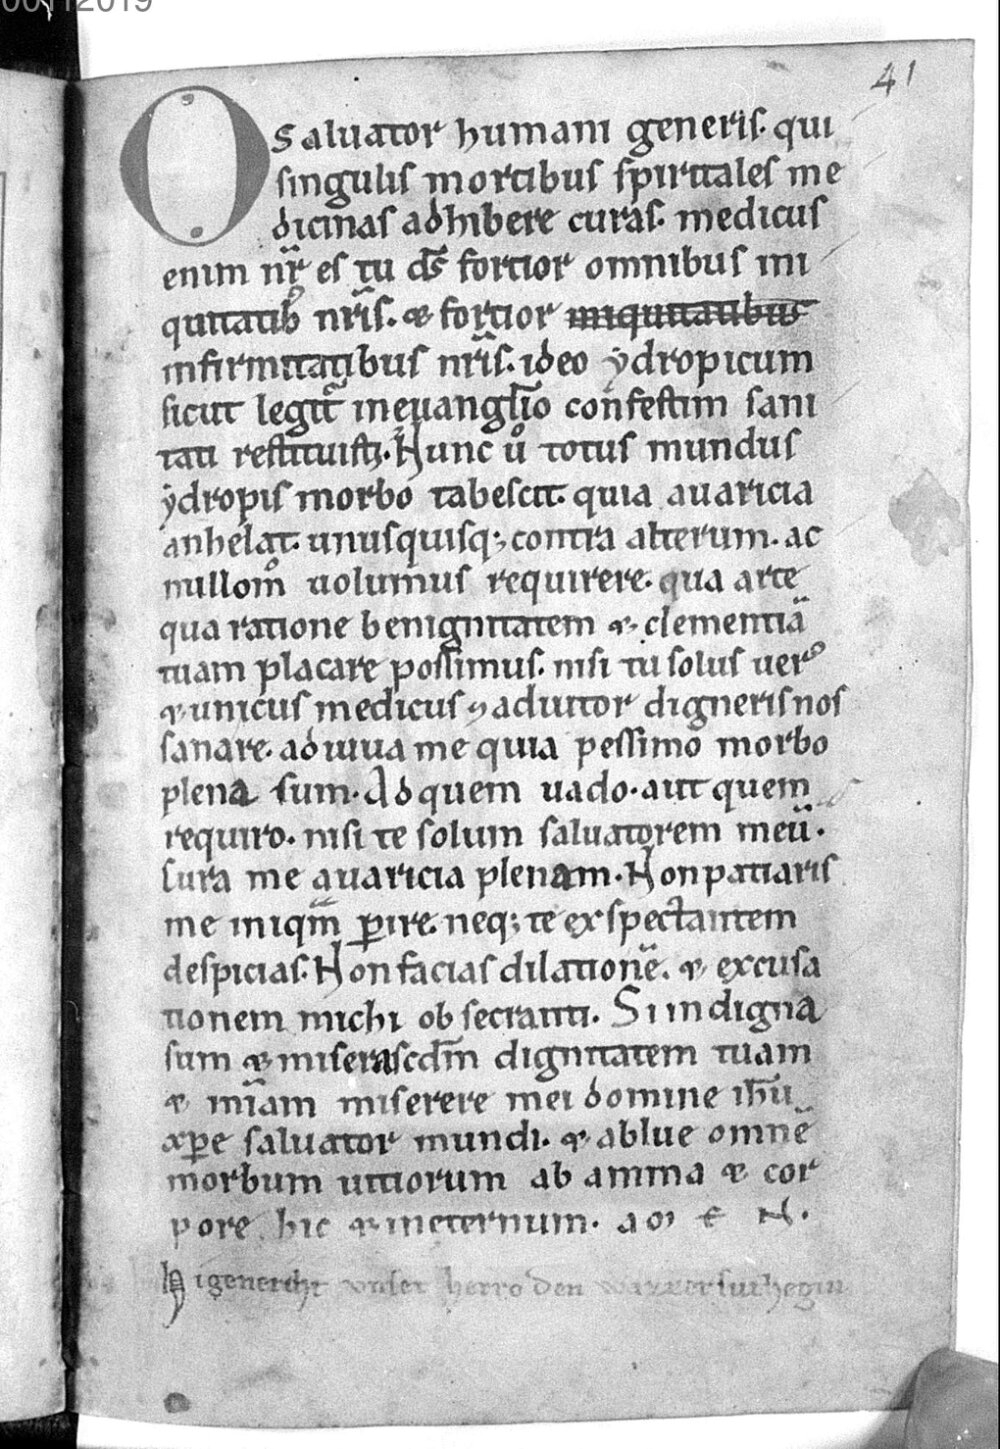 00112019
41
O Saluator humani generis. qui
singulis morcibus spiritales me
dicinas adhibere curas. medicus
enim nr̃ es tu ds̃ fortior omnibus ini
quitatib; nr̃is. & fortior iniquitatibus
infirmitatibus nr̃is. ideo ẏdropicum
sicut legit̃ in euangl̃io confestim sani
tati restituisti. Hunc ůo totus mundus
ẏdropis morbo tabescit. quia auaricia
anhelat. unusquisq; contra alterum. ac
nullom̊ uolumus requirere. qua arte
qua ratione benignitatem & clementiā
tuam placare possimus. nisi tu solus uer9
& unicus medicus & adiutor digneris nos
sanare. adiuua me quia pessimo morbo
plena sum. Ad quem uado. aut quem
requiro. nisi te solum saluatorem meū.
Cura me auaricia plenam. Non patiaris
me iniqm̃ ꝑire. neq; te exspectantem
despicias. Non facias dilationē. & excusa
tionem michi obsecranti. Si indigna
sum & misera scdm̃ dignitatem tuam
& mĩam miserere mei domine ihũ
xp̃e saluator mundi. & ablue omnē
morbum uitiorum ab anima & cor
pore hic & ineternum. a m e N.
Higenerdht unser herro den wazzersuhegin